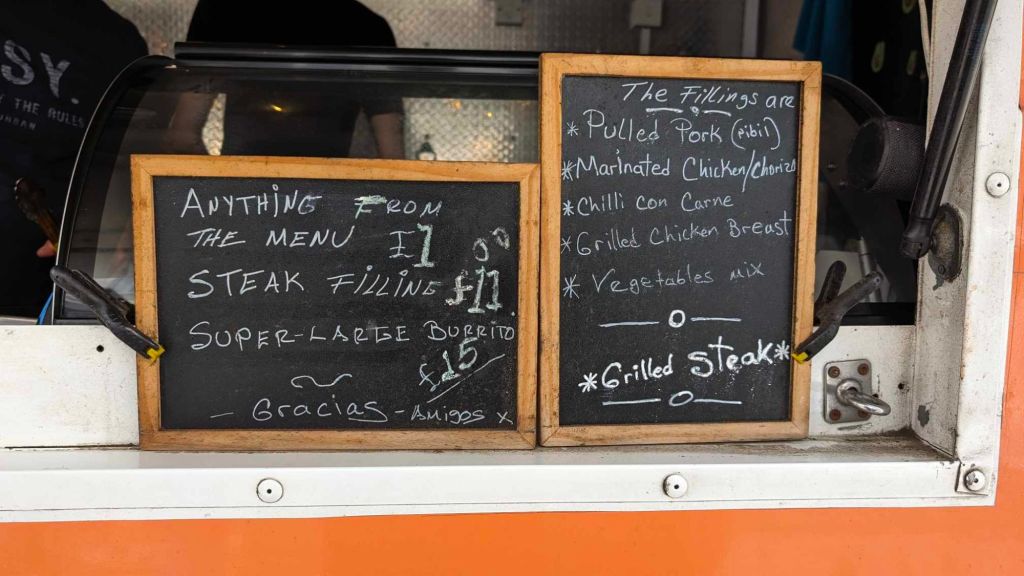 SY.
THE RULES
ANYTHING FROM
THE MENU
STEAK FILLING £11
SUPER-LARGE BURRITO
£15
- Gracias - Amigos x
The Fillings are
* Pulled Pork (pibil)
* Marinated Chicken/Chorizo
* Chilli con Carne
* Grilled Chicken Breast
* Vegetables mix
*Grilled Steak*